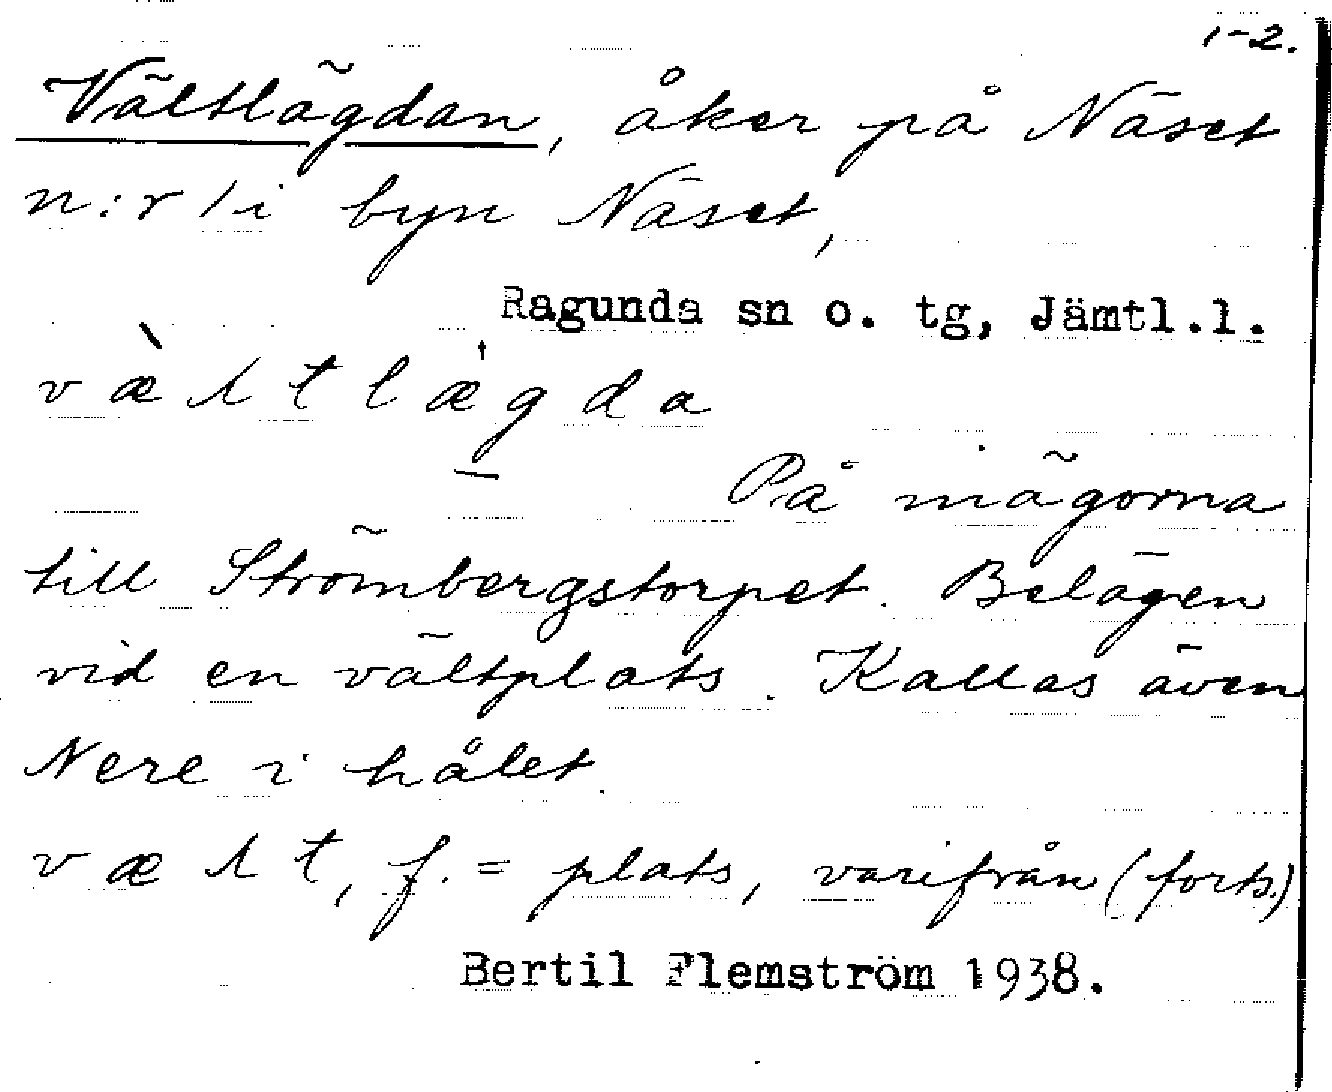 1-2.
Vältlägdan, åker på Näset
n:r 1 i byn Näset,
Ragunda sn o. tg, Jämtl.l.
v æ̀ ʌ t l æ̍ g d a
På inägorna
till Strömbergstorpet. Belägen
vid en vältplats. Kallas även
Nere i hålet.
v æ ʌ t, f. = plats, varifrån (forts.)
Bertil Flemström 1938.